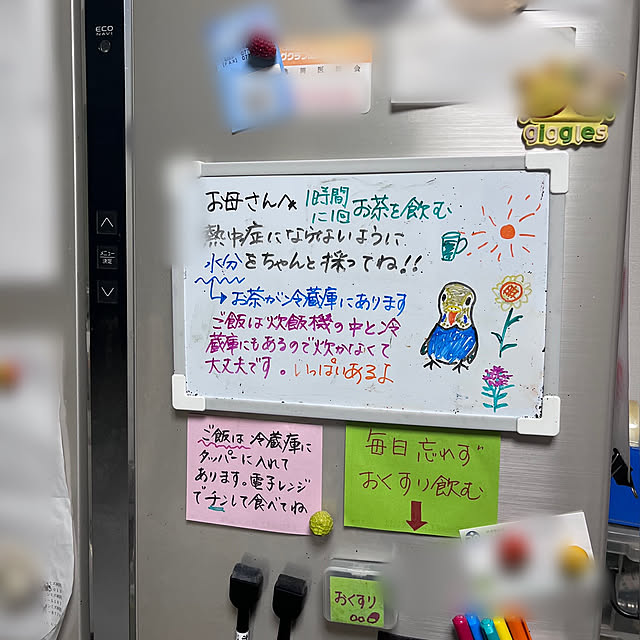 ECO
NAVI
メニュー
決定
giggles
お母さんへ
1時間
に1回
お茶を飲む
熱中症にならないように
水分をちゃんと採ってね!!
お茶が冷蔵庫にあります
ご飯は炊飯機の中と冷
蔵庫にもあるので炊かなくて
大丈夫です。いっぱいあるよ
ご飯は冷蔵庫に
タッパーに入れて
あります。電子レンジ
でチンして食べてね
毎日忘れず
おくすり飲む
おくすり